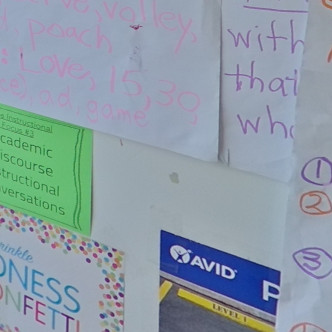 valley,
poach
: Love, 15, 30,
ad, game
with
that
who
Instructional
Focus #3
cademic
iscourse
structional
versations
1
2
3
inkle
DNESS
ONFETTI
AVID
LEVEL 1
P